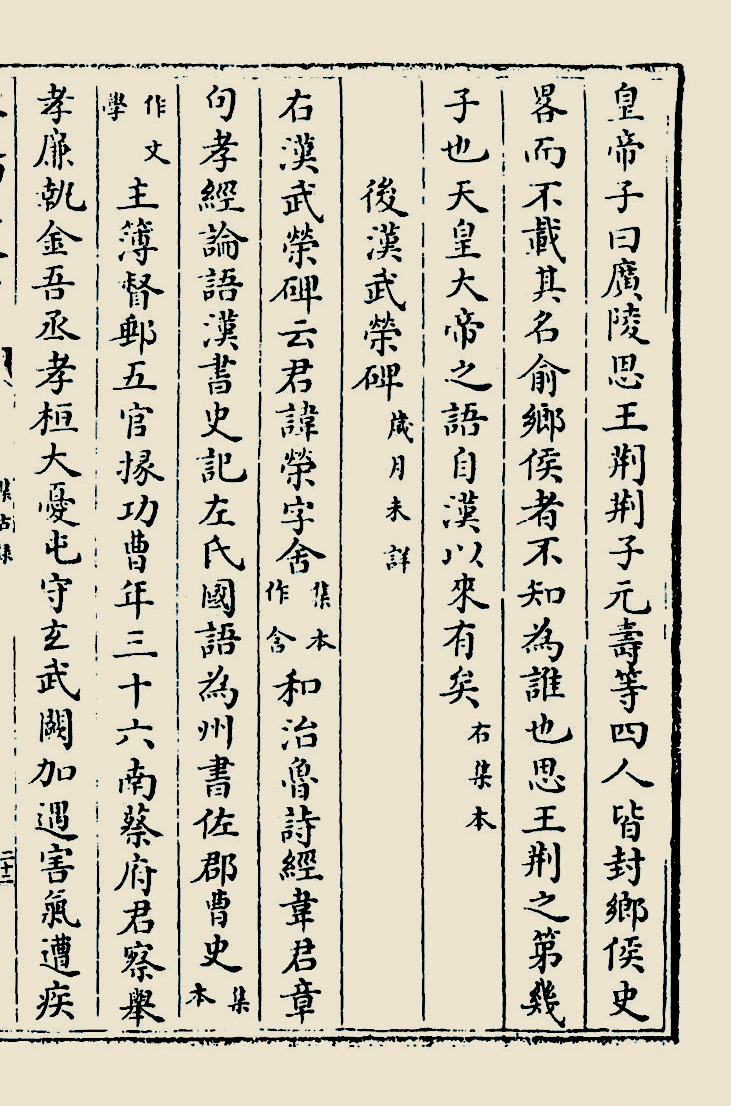 皇帝子曰廣陵思王荆荆子元壽等四人皆封鄉侯史
畧而不載其名俞鄉侯者不知為誰也思王荆之第幾
子也天皇大帝之語自漢以來有矣右集本
後漢武榮碑歲月未詳
右漢武榮碑云君諱榮字舍集本作含和治魯詩經韋君章
句孝經論語漢書史記左氏國語為州書佐郡曹史集本
作文學主簿督郵五官掾功曹年三十六南蔡府君察舉
孝廉執金吾丞孝桓大憂屯守玄武闕加遇害氣遭疾
集古錄
二十二